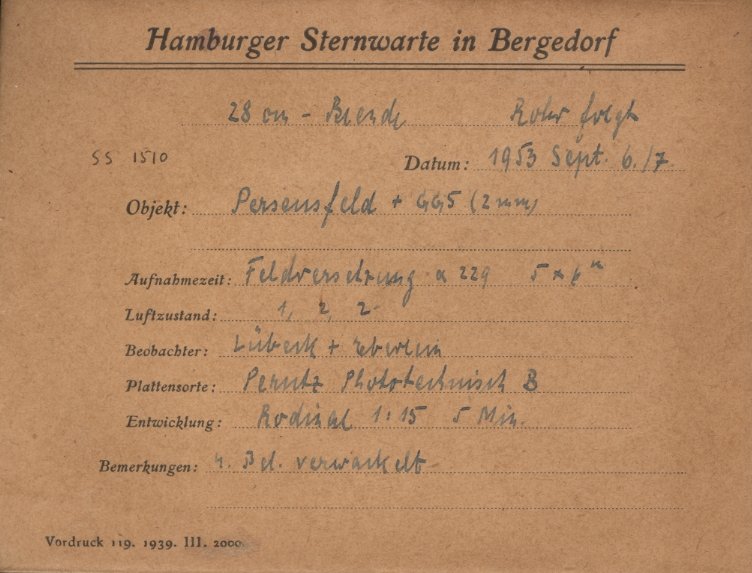 Hamburger Sternwarte in Bergedorf
28 cm - Blende Rohr folgt
SS 1510 Datum: 1953 Sept. 6./7.
Objekt: Perseusfeld + GG5 (2mm)
Aufnahmezeit: Feldversetzung α 229 5 × 6ᵐ
Luftzustand: 1, 2, 2-
Beobachter: Lübeck + Eberlein
Plattensorte: Perutz Phototechnisch B
Entwicklung: Rodinal 1:15 5 Min.
Bemerkungen: 4. Bel. verwackelt
Vordruck 119. 1939. III. 2000.